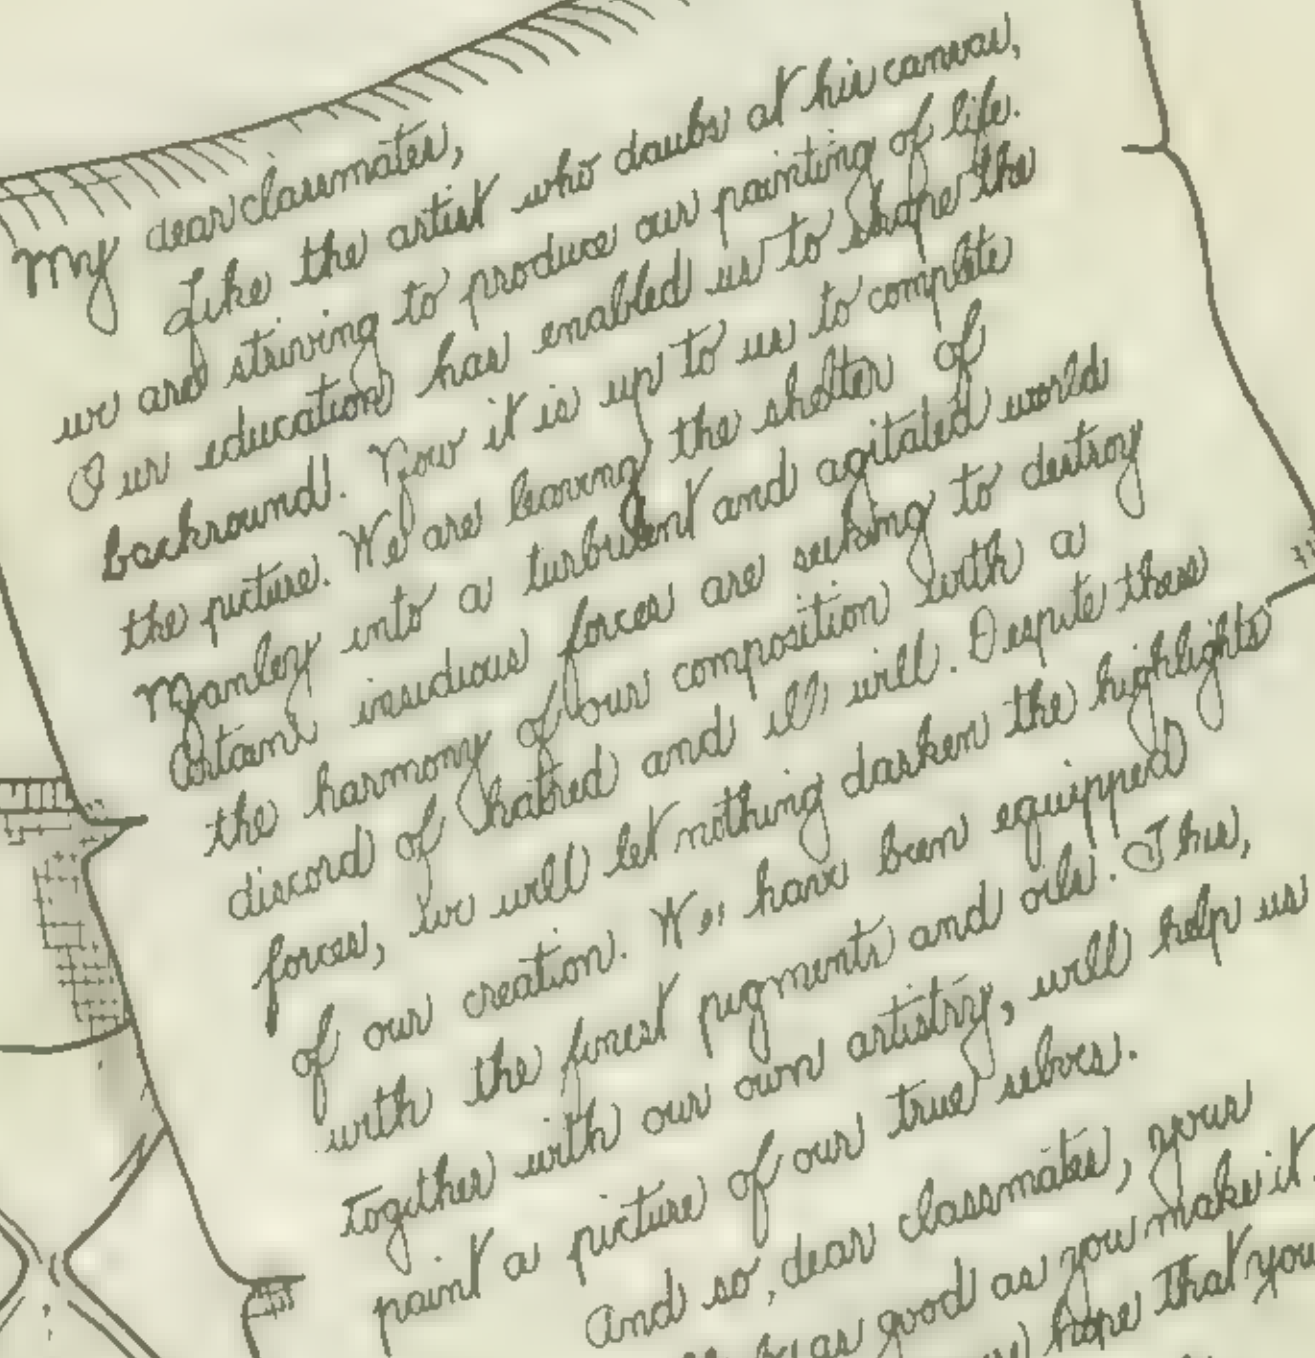 My dear classmates,
Like the artist who daubs at his canvas,
we are striving to produce our painting of life.
Our education has enabled us to shape the
backround. Now it is up to us to complete
the picture. We are leaving the shelter of
Manley into a turbulent and agitated world
Certain insidious forces are seeking to destroy
the harmony of our composition with a
discord of hatred and ill will. Despite these
forces, we will let nothing darken the highlights
of our creation. We have been equipped
with the finest pigments and oils. This,
together with our own artistry, will help us
paint a picture of our true selves.
And so, dear classmates, your
be as good as you make it.
hope that you